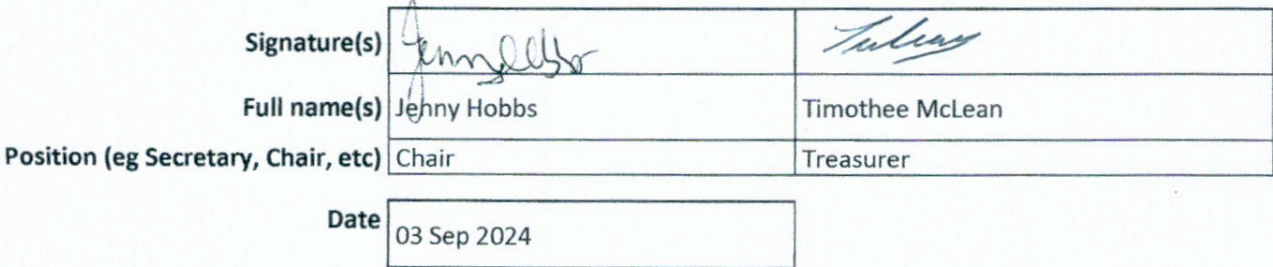 Signature(s)
Full name(s) Jenny Hobbs Timothee McLean
Position (eg Secretary, Chair, etc) Chair Treasurer
Date 03 Sep 2024